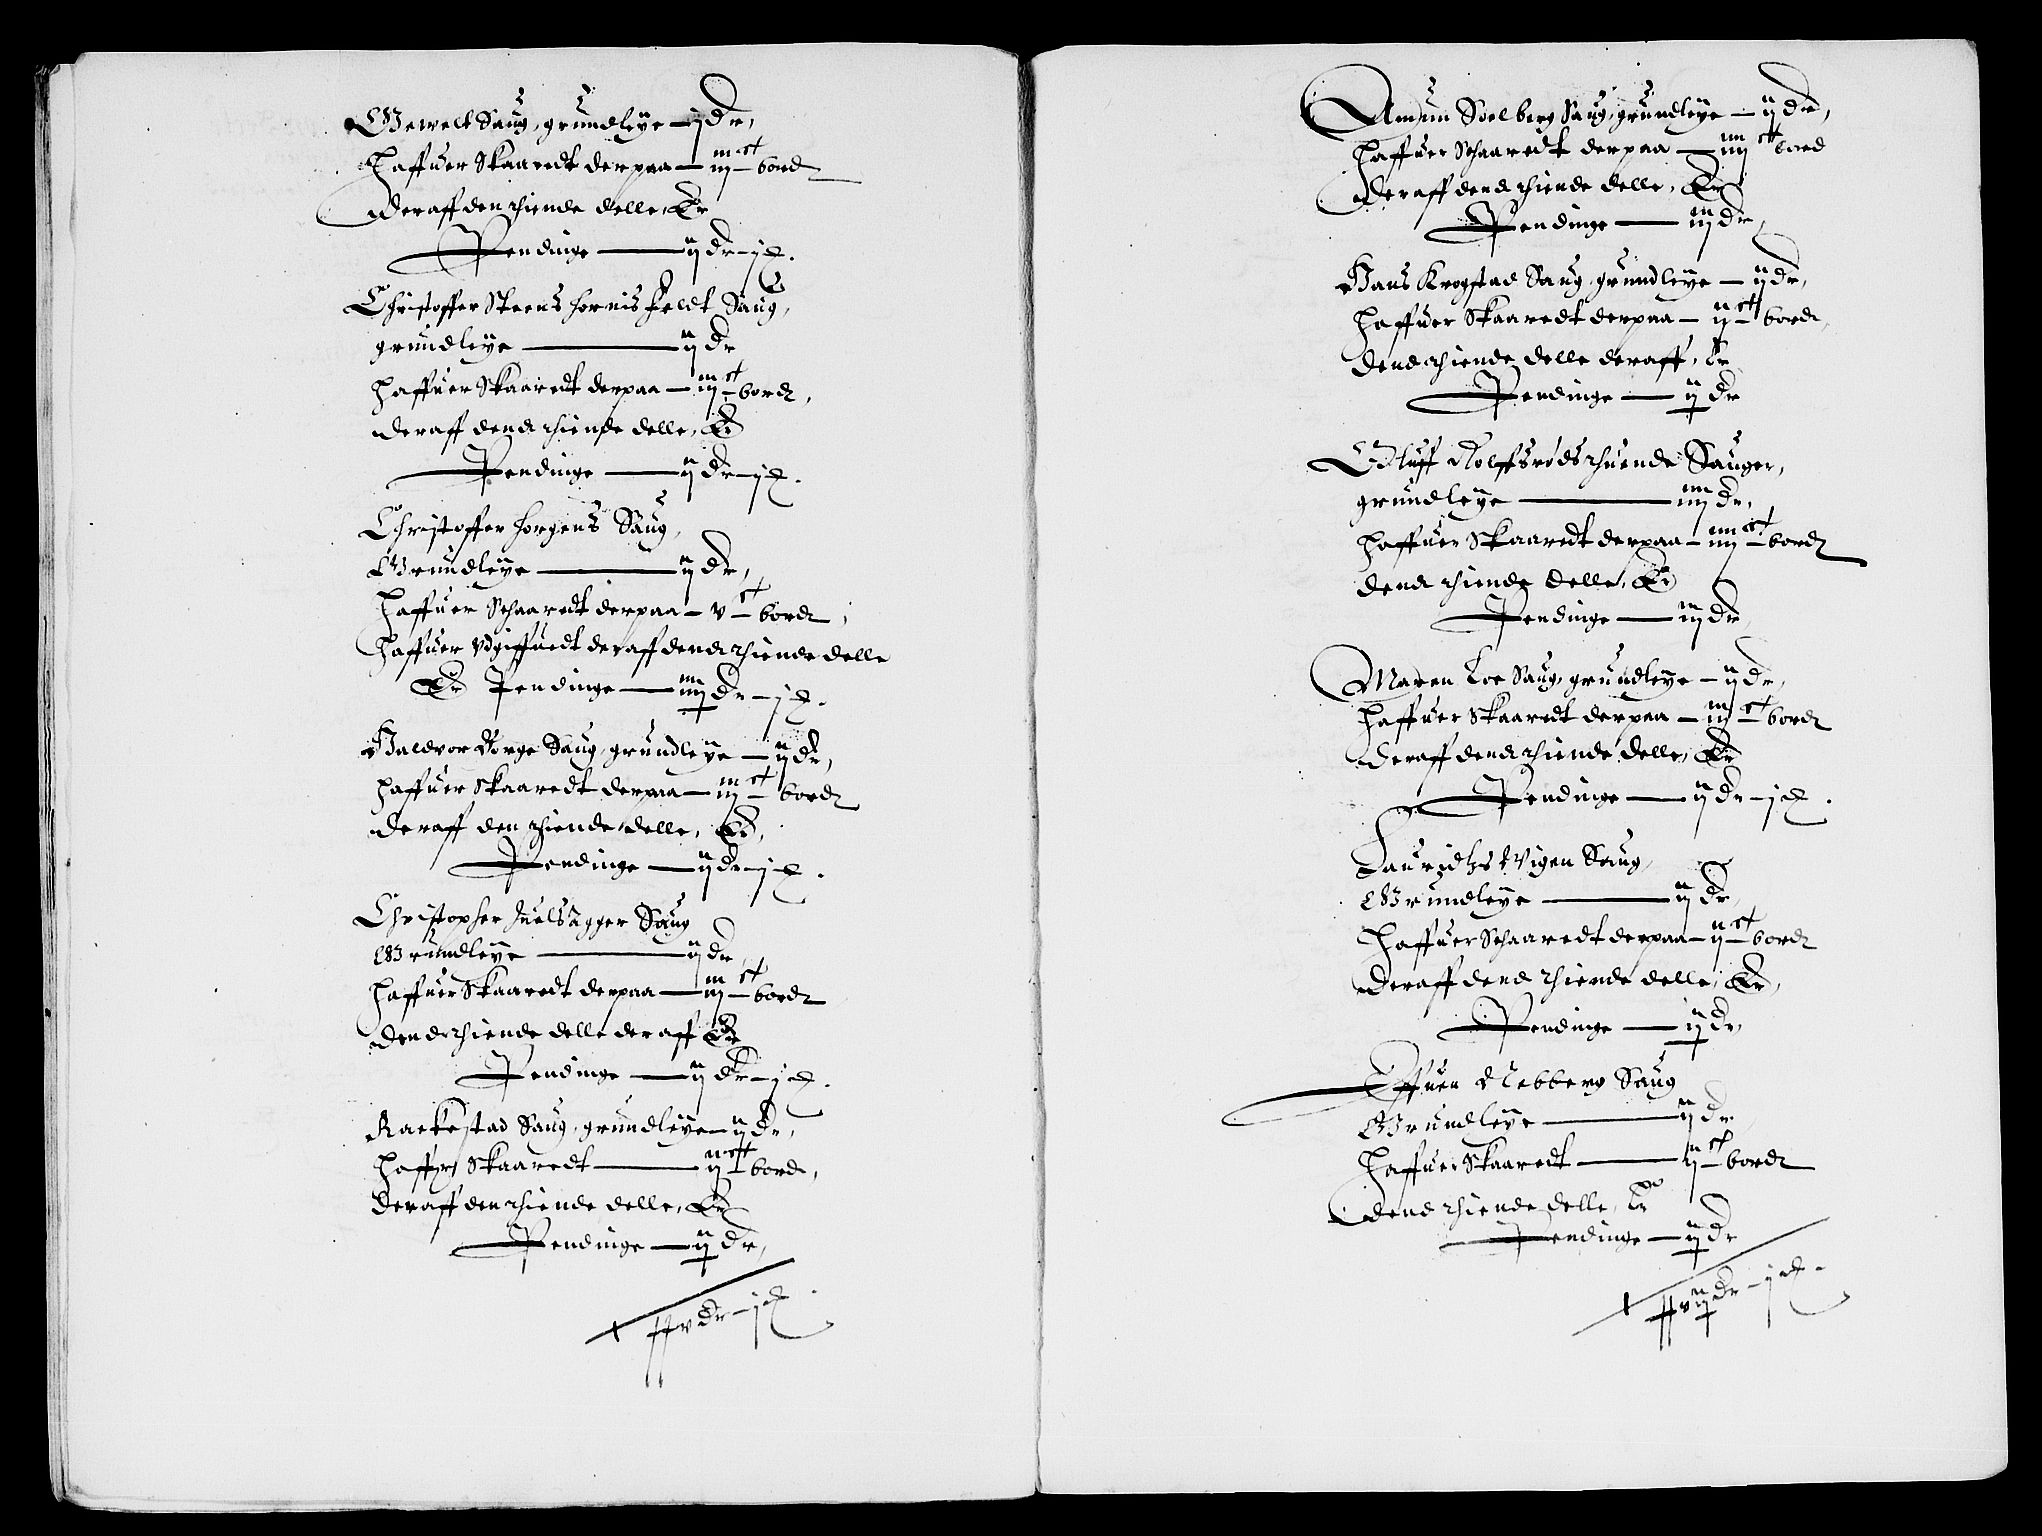 Gewelt Saug, grundleÿe — j dr,
Haffuer Skaaredt derpaa — iij ct bord
deraff den thiende delle, Er
Pendinge — ij dr — j
Christoffer Steens Hornis Feldt Saug,
grundleÿe — ij dr
Haffuer Skaaredt derpaa — iij ct bord,
deraff dend thiende delle, Er
Pendinge — ij dr — j
Christoffer Jorgens Saug,
Grundleÿe — ij dr,
Haffuer Schaaredt derpaa — v ct bord,
Haffuer vdgiffuedt deraff dend thiende delle
Er Pendinge — iiij dr — j
Haldvor Borge Saug, grundleÿe — ij dr,
Haffuer Skaaredt derpaa — iij ct bord
deraff den thiende delle, Er,
Pendinge — ij dr — j
Christopher Juels Saug
Grundleÿe — ij dr,
Haffuer Skaaredt derpaa — iij ct bord
dend thiende delle deraff Er
Pendinge — ij dr — j
Rackestad Saug, grundleÿe — ij dr,
Haffuer Skaaredt — ij ct bord,
deraff den thiende delle, Er
Pendinge — ij dr,
xxv dr — j
Amun Soelberg Saug, grundleÿe — ij dr,
Haffuer Schaaredt derpaa — iiij ct bord
deraff dend thiende delle, Er
Pendinge — iij dr,
Hans Krogstad Saug, grundleÿe — ij dr,
Haffuer Skaaredt derpaa — ij ct bord,
dend thiende delle deraff, Er
Pendinge — ij dr
Oluff Rolffsrøds thuende Sauger,
grundleÿe — iiij dr,
Haffuer Skaaredt derpaa — iiij ct bord
dend thiende delle, Er
Pendinge — iij dr,
Maren Loe Saug, grundleÿe — ij dr,
Haffuer Skaaredt derpaa — iij ct bord
deraff dend thiende delle, Er
Pendinge — ij dr — j
Lauridtzs Wigen Saug,
Grundleÿe — ij dr,
Haffuer Schaaredt derpaa — ij ct bord
deraff dend thiende delle, Er,
Pendinge — ij dr,
Effuen Nebberg Saug
Grundleÿe — ij dr
Haffuer Skaaredt — ij ct bord
dend thiende delle, Er
Pendinge — ij dr
xxvij dr — j